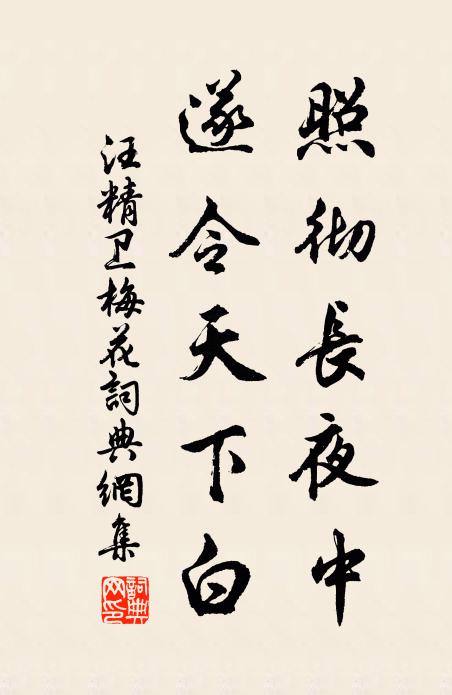 照彻長夜中
遂令天下白
汪精卫梅花詞典網集
詞典网印